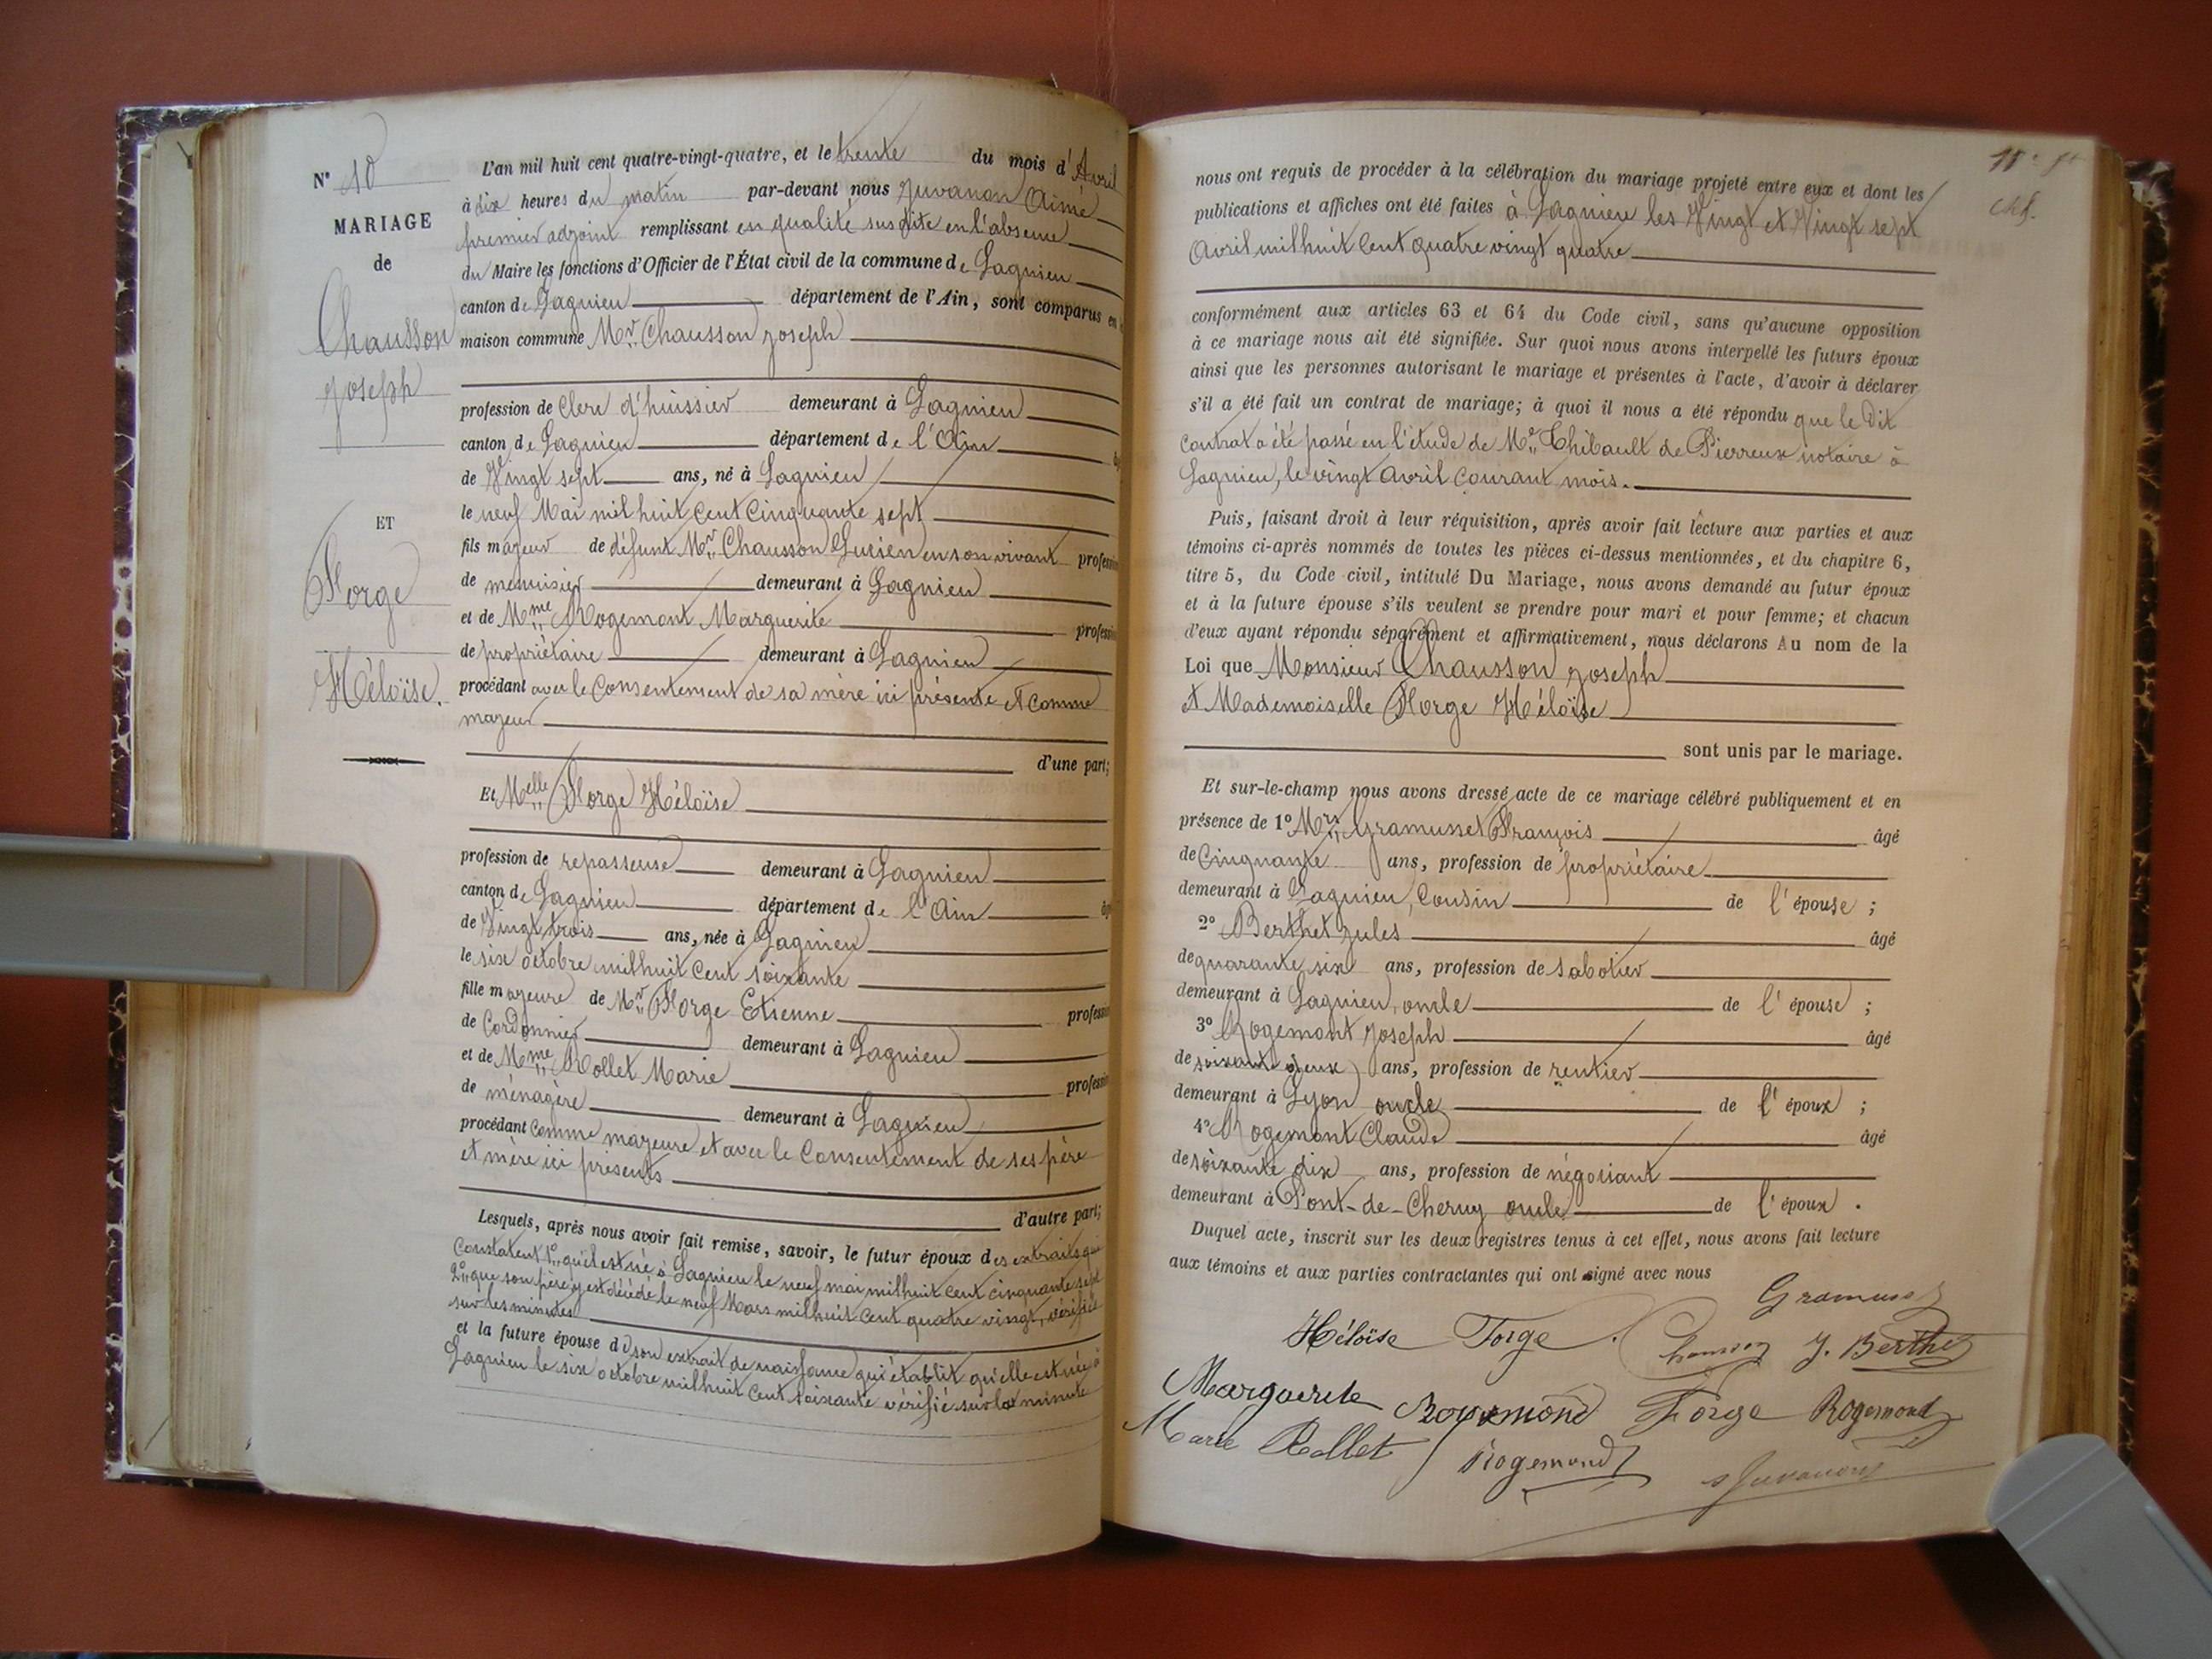 N° 10
MARIAGE
de
Chausson
Joseph
ET
Forge
Héloïse.
L'an mil huit cent quatre-vingt-quatre, et le trente du mois d'Avril
à dix heures du matin par-devant nous Juvanon Aimé
premier adjoint remplissant en qualité sus dite en l'absence
du Maire les fonctions d'Officier de l'État civil de la commune de Lagnieu
canton de Lagnieu département de l'Ain, sont comparus en
maison commune Mr Chausson Joseph
profession de Clerc d'huissier demeurant à Lagnieu
canton de Lagnieu département de l'Ain
de Vingt sept ans, né à Lagnieu
le neuf Mai mil huit cent cinquante sept
fils majeur de défunt Mr Chausson Lucien en son vivant profession
de menuisier demeurant à Lagnieu
et de Mme Rogemont Marguerite profession
de propriétaire demeurant à Lagnieu
procédant avec le Consentement de sa mère ici présente et comme
majeur
d'une part;
Et Melle Forge Héloïse
profession de repasseuse demeurant à Lagnieu
canton de Lagnieu département de l'Ain
de Vingt trois ans, née à Lagnieu
le six octobre mil huit cent soixante
fille majeure de Mr Forge Etienne profession
de Cordonnier demeurant à Lagnieu
et de Mme Rollet Marie profession
de ménagère demeurant à Lagnieu
procédant comme majeure et avec le Consentement de ses père
et mère ici présents
d'autre part;
Lesquels, après nous avoir fait remise, savoir, le futur époux des extraits qui
Constatent 1° qu'il est né à Lagnieu le neuf mai mil huit cent cinquante sept
2° que son père y est décédé le neuf Mars mil huit cent quatre vingt, vérifié
sur les minutes
et la future épouse de son extrait de naissance qui établit qu'elle est née à
Lagnieu le six octobre mil huit cent soixante vérifié sur la minute
nous ont requis de procéder à la célébration du mariage projeté entre eux et dont les
publications et affiches ont été faites à Lagnieu les Vingt et Vingt sept
Avril mil huit Cent quatre vingt quatre
conformément aux articles 63 et 64 du Code civil, sans qu'aucune opposition
à ce mariage nous ait été signifiée. Sur quoi nous avons interpellé les futurs époux
ainsi que les personnes autorisant le mariage et présentes à l'acte, d'avoir à déclarer
s'il a été fait un contrat de mariage; à quoi il nous a été répondu que le dit
contrat a été passé en l'étude de Me Thibault de Pierreux notaire à
Lagnieu, le vingt avril courant mois.
Puis, faisant droit à leur réquisition, après avoir fait lecture aux parties et aux
témoins ci-après nommés de toutes les pièces ci-dessus mentionnées, et du chapitre 6,
titre 5, du Code civil, intitulé Du Mariage, nous avons demandé au futur époux
et à la future épouse s'ils veulent se prendre pour mari et pour femme; et chacun
d'eux ayant répondu séparément et affirmativement, nous déclarons Au nom de la
Loi que Monsieur Chausson Joseph
et Mademoiselle Forge Héloïse
sont unis par le mariage.
Et sur-le-champ nous avons dressé acte de ce mariage célébré publiquement et en
présence de 1° Mrs Gramusset François âgé
de Cinquante ans, profession de propriétaire
demeurant à Lagnieu, Cousin de l'épouse ;
2° Berthet Jules âgé
de quarante six ans, profession de sabotier
demeurant à Lagnieu, oncle de l'épouse ;
3° Rogemont Joseph âgé
de soixante deux ans, profession de rentier
demeurant à Lyon oncle de l'époux ;
4° Rogemont Claude âgé
de soixante dix ans, profession de négociant
demeurant à Pont-de-Cheruy oncle de l'époux .
Duquel acte, inscrit sur les deux registres tenus à cet effet, nous avons fait lecture
aux témoins et aux parties contractantes qui ont signé avec nous
Héloïse Forge Chausson J. Berthet
Marguerite Rogemond Forge Rogemond
Marie Rollet Rogemond
Juvanon